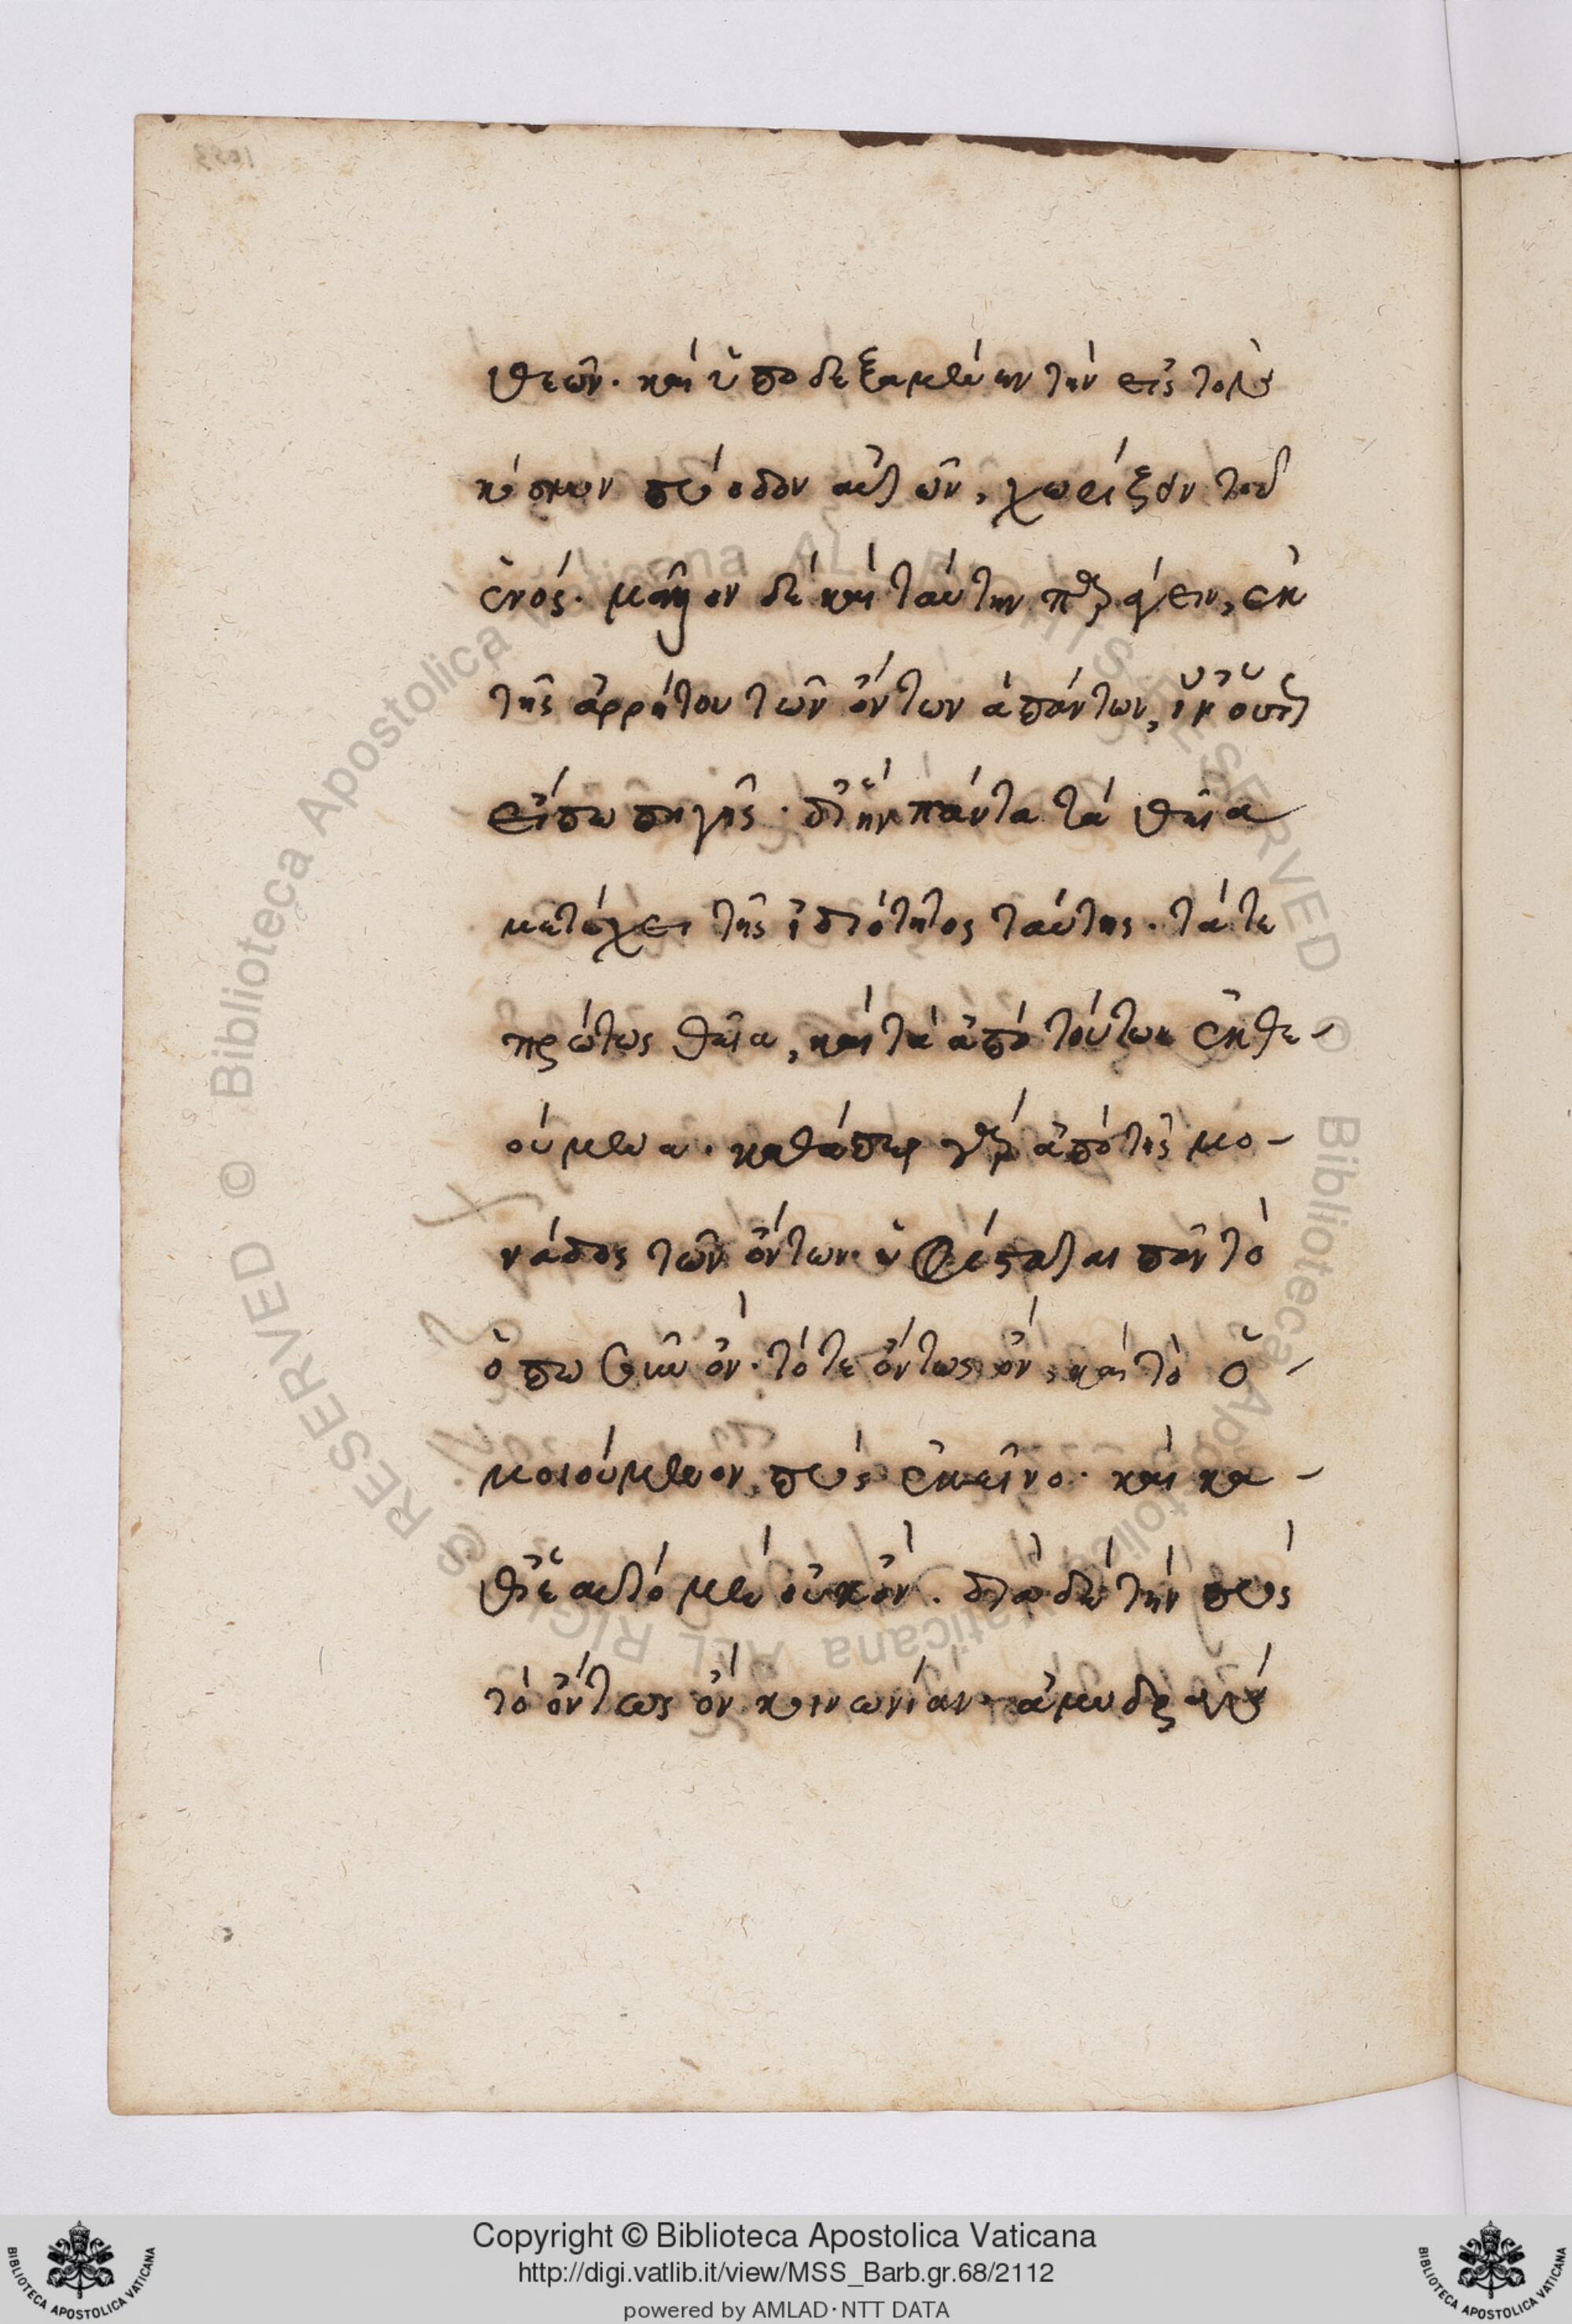 θεῶν. καὶ ὑποδεξαμένην τὴν εἰς τοὺς
κόσμον πρόοδον αὐτῶν, χωρίζον τοῦ
ἑνός. μᾶλλον δὲ καὶ ταύτην παράγειν, ἐκ
τῆς ἀρρήτου τῶν ὄντων ἁπάντων, ἵν' οὕτως
εἴπω πηγῆς. δι' ἣν πάντα τὰ θεῖα
μετέχει τῆς ἰδιότητος ταύτης. τά τε
πρώτως θεῖα, καὶ τὰ ἀπὸ τούτων ἐκθε-
ούμενα. καθάπερ γὰρ ἀπὸ τῆς μο-
νάδος τῶν ὄντων ὑφέσταται πᾶν τὸ
ὁπωσοῦν ὄν. τό τε ὄντως ὄν, καὶ τὸ ὁ-
μοιούμενον πρὸς ἐκεῖνο. καὶ κα-
θ' ἑαυτὸ μὲν οὐκ ὄν. διὰ δὲ τὴν πρὸς
τὸ ὄντως ὂν κοινωνίαν ἀμυδρὸν
Copyright © Biblioteca Apostolica Vaticana
http://digi.vatlib.it/view/MSS_Barb.gr.68/2112
powered by AMLAD·NTT DATA
BIBLIOTECA APOSTOLICA VATICANA
BIBLIOTECA APOSTOLICA VATICANA